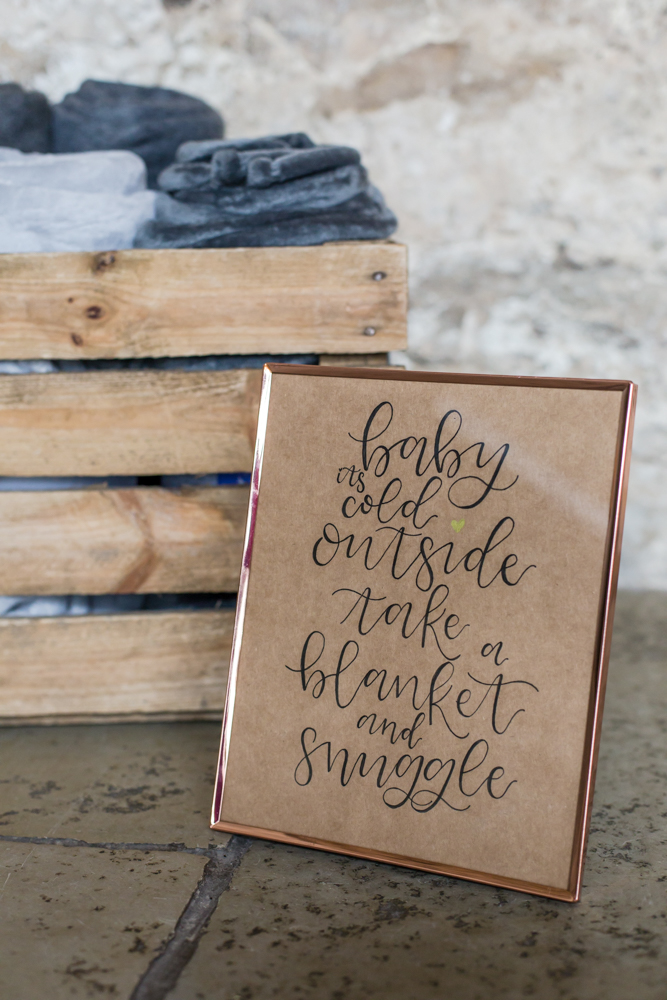 baby
its
cold
outside
take a
blanket
and
snuggle